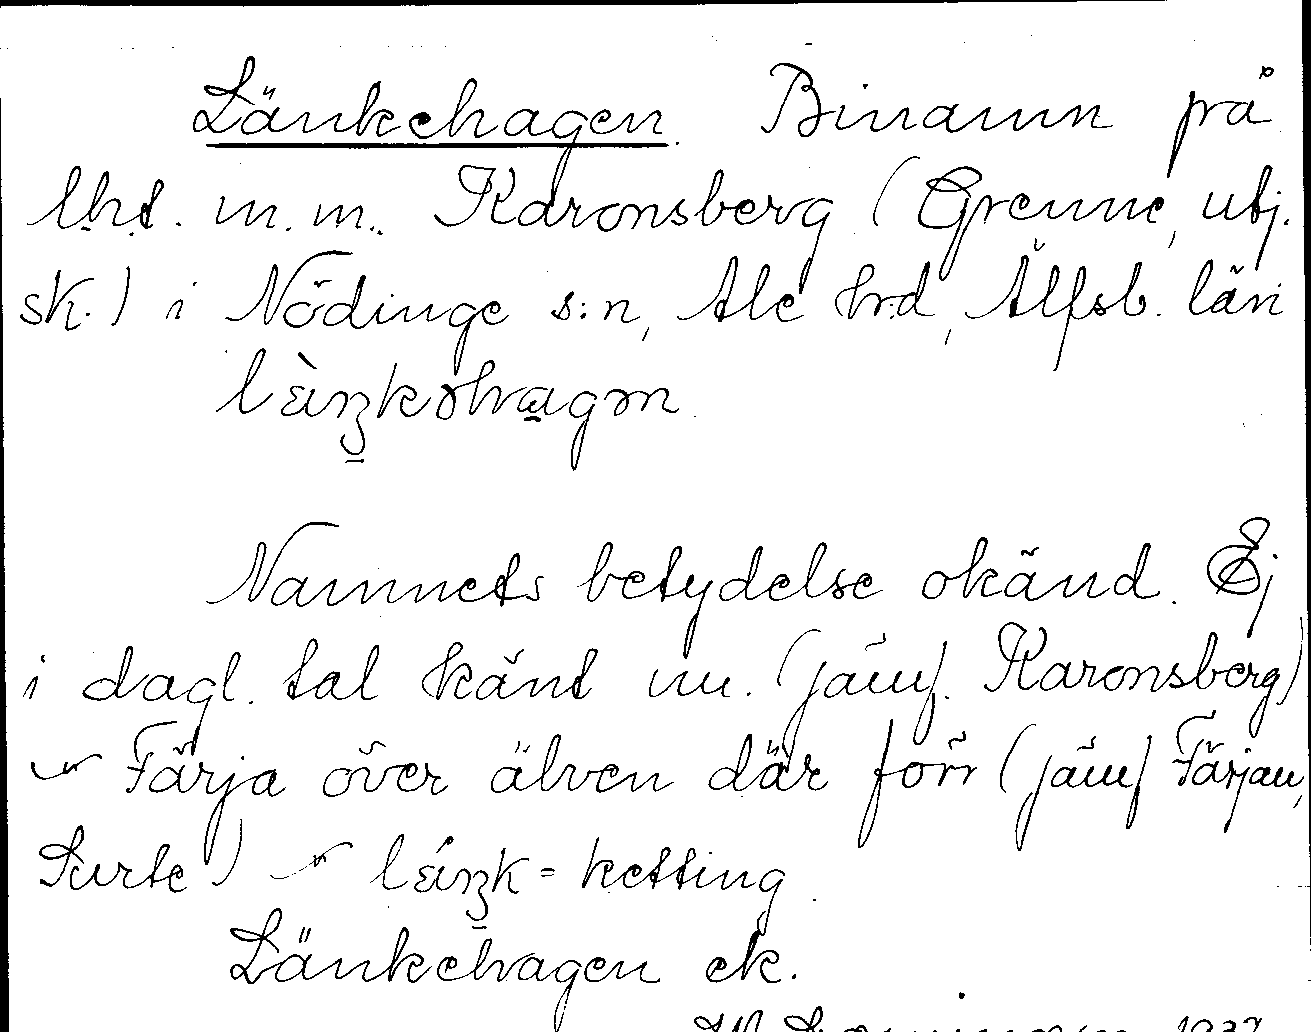 Länkehagen. Binamn på
lht. m.m. Karonsberg (Grenne, utj.
sk.) i Nödinge s:n, Ale hrd, Älfsb. län

Namnets betydelse okänd. Ej
i dagl. tal känt nu. (jämf. Karonsberg)
Färja över älven där förr (jämf Färjan,
Surte) = ketting
Länkehagen ek.
1937